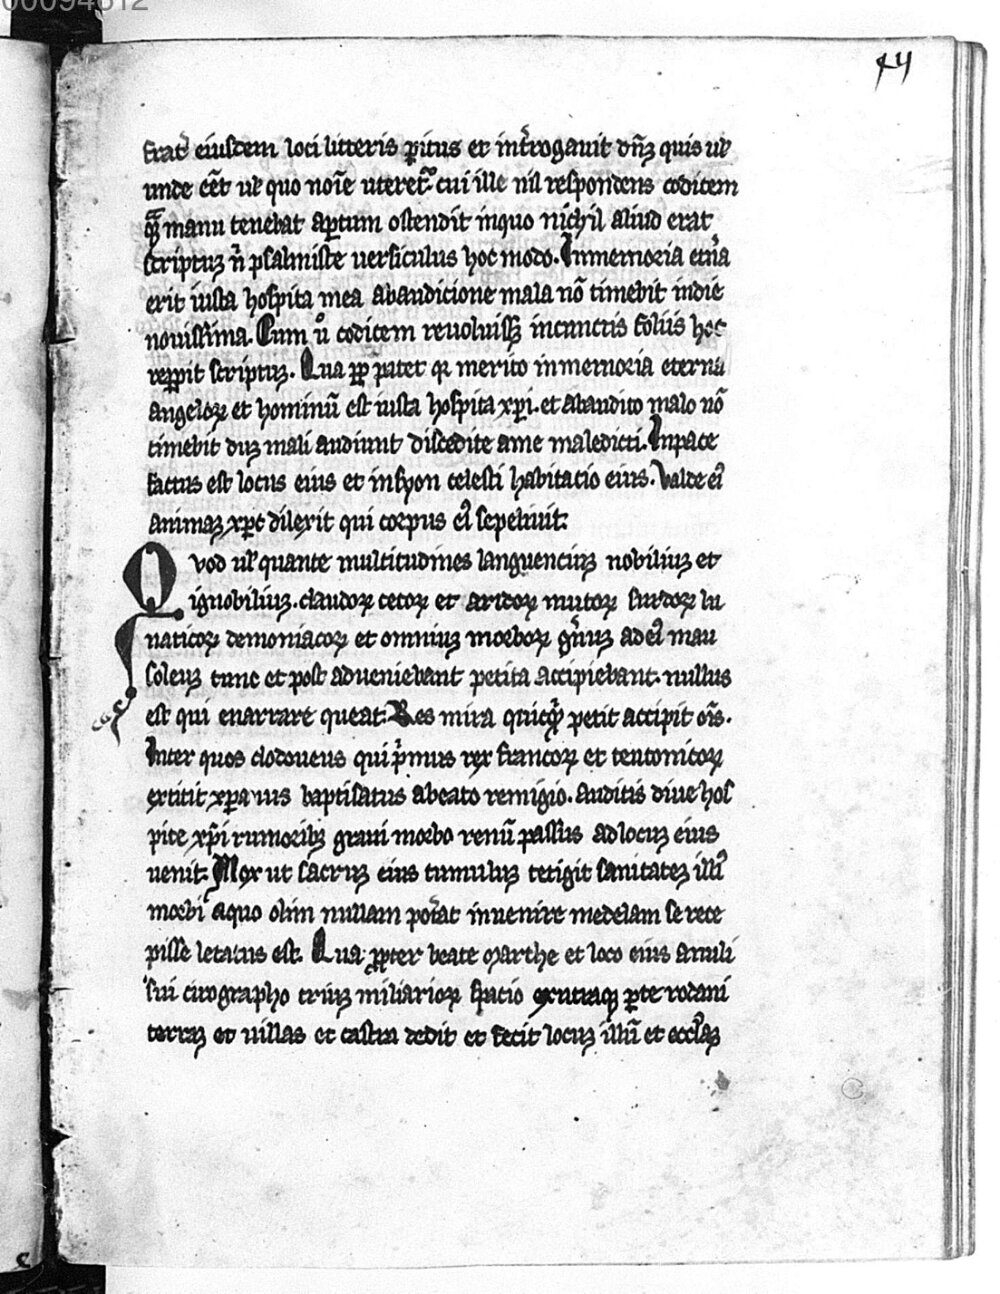 00094612
44
frat᷒ eiusdem loci litteris ꝑitus et int᷒rogauit dn̄ꝫ quis uł
unde eēt uł quo noīe uteret᷒. cui ille nil respondens codicem
qᷓ manu tenebat aꝑtum ostendit inquo nichil aliud erat
scriptuꝫ n̄ psalmiste uersiculus hoc modo. Inmemoria et᷒na
erit iusta hospita mea abaudicione mala nō timebit indie
nouissima. Cum u᷒o codicem reuoluissꝫ incunctis foliis hoc
reꝑꝑit scriptuꝫ. Qua ꝓp patet qꝛ merito inmemoria eterna
angeloꝝ et hominū est iusta hospita xp̄i. et abaudito malo nō
timebit duꝫ mali audiunt discedite ame maledicti. Inpace
factus est locus eius et insyon celesti habitacio eius. Valde ei᷒
animaꝫ xp̄c dilexit qui corpus ei᷒ sepeliuit.
Qvod uł quante multitudines languenciuꝫ nobiliuꝫ et
ignobiliuꝫ. claudoꝝ cecoꝝ et aridoꝝ mutoꝝ surdoꝝ lu
naticoꝝ demoniacoꝝ et omniuꝫ morboꝝ gn̄iuꝫ adei᷒ mau
soleuꝫ tunc et post adueniebant petita accipiebant. nullus
est qui enarrare queat. Res mira quicqᷓ petit accipit oīs.
Inter quos clodoueus qui pⁱmus rex francoꝝ et teutonicoꝝ
extitit xp̄ianus baptisatus abeato remigio. auditis diue hos
pite xp̄i rumoribꝫ graui morbo renū passus adlocuꝫ eius
uenit. Mox ut sacruꝫ eius tumuluꝫ tetigit sanitateꝫ illi᷒
morbi aquo olim nullam pot᷒at inuenire medelam se rece
pisse letatus est. Qua ꝓpter beate marthe et loco eius anuli
sui cirographo triuꝫ miliarioꝝ spacio exutraqꝫ ꝑte rodani
terras et uillas et castra dedit et fecit locuꝫ illū et eccl᷒iaꝫ
c